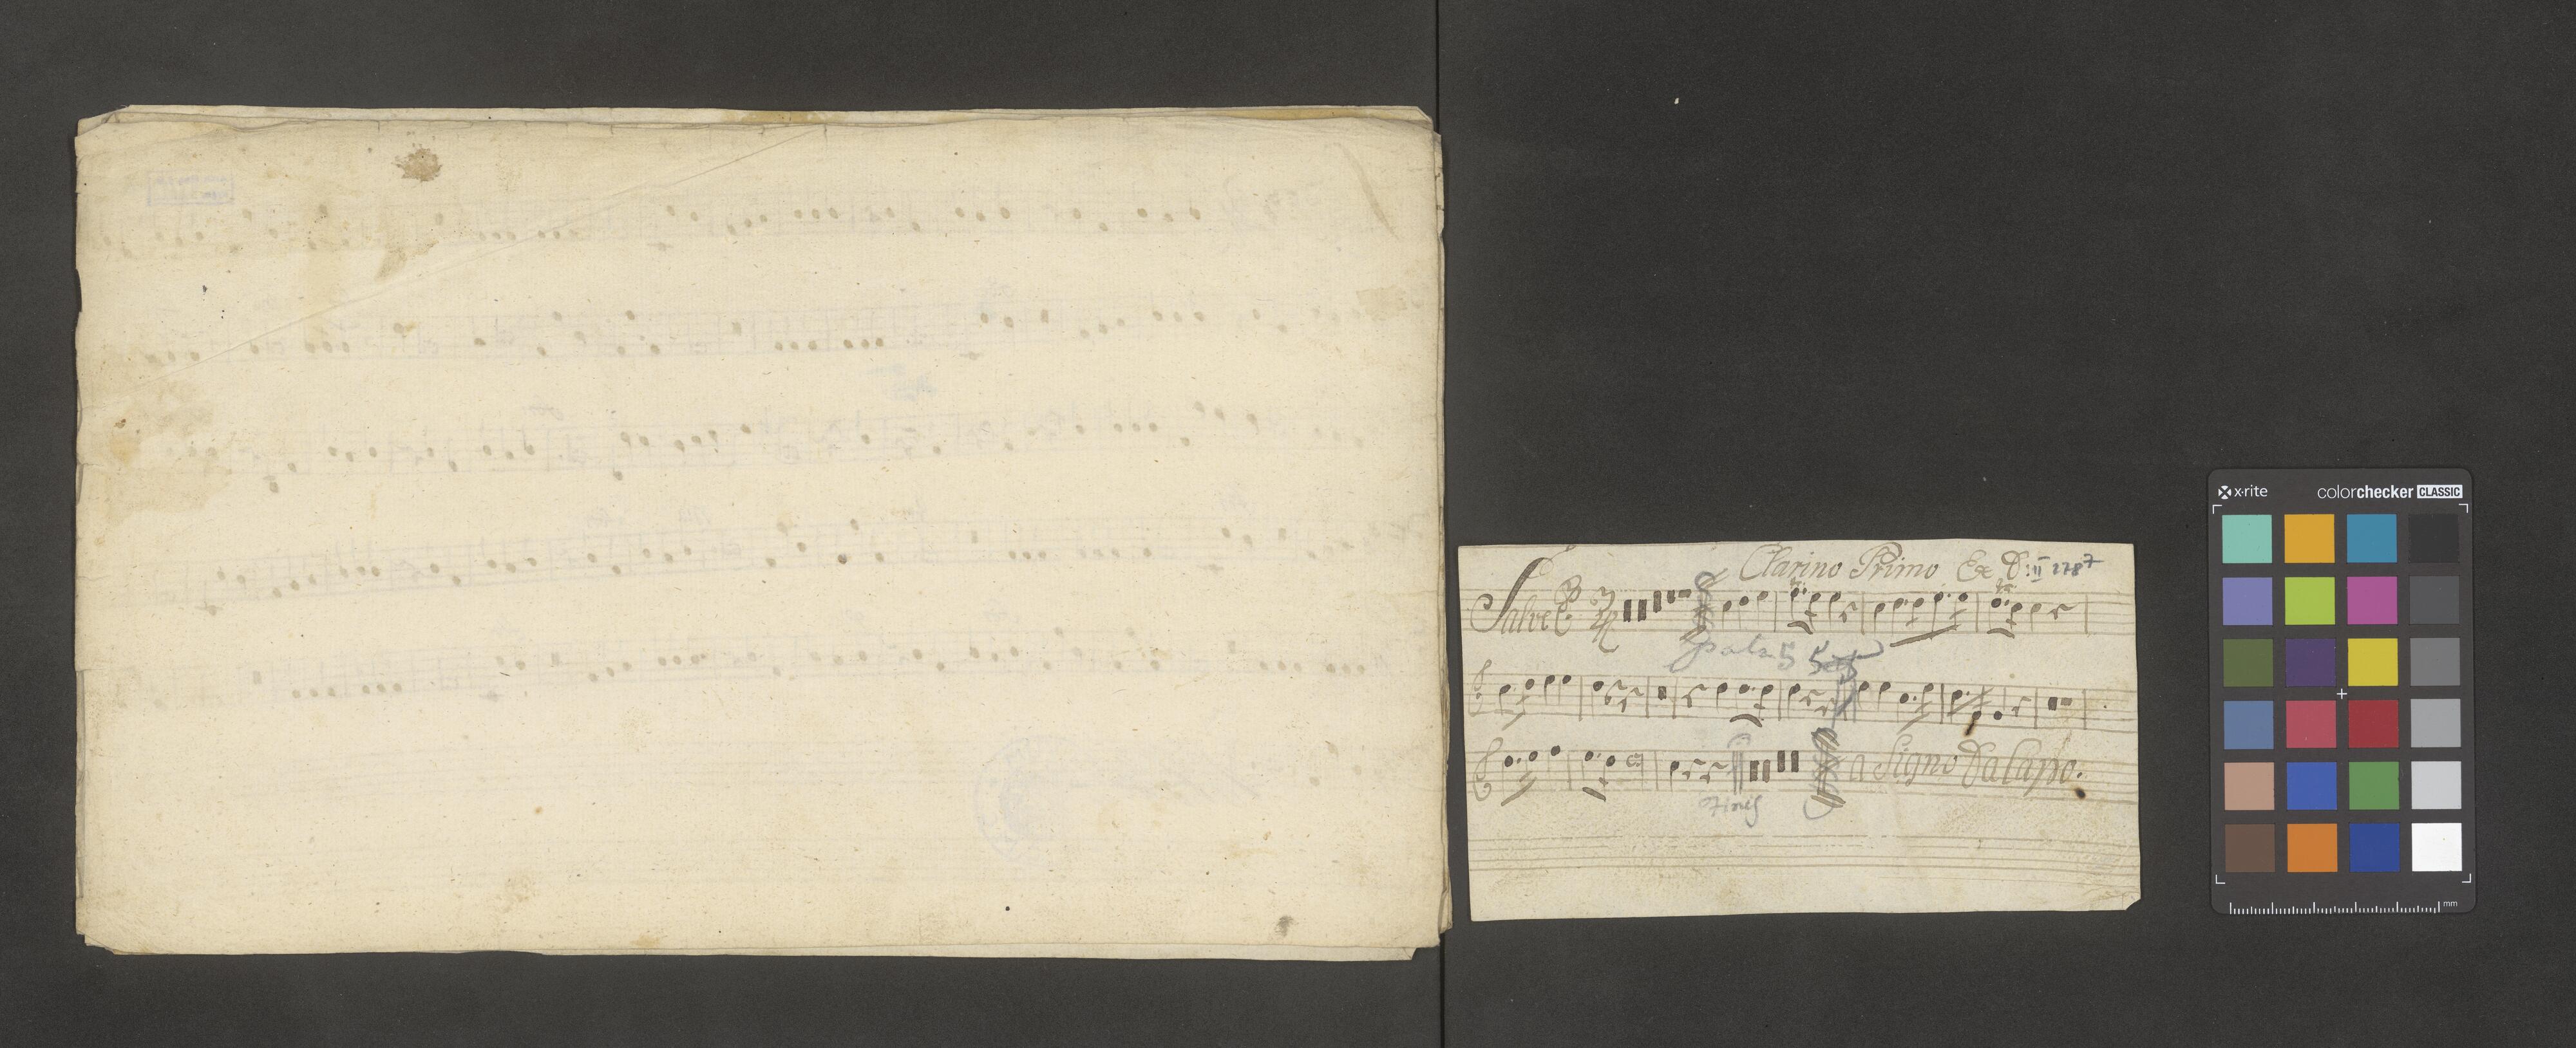 Clarino Primo Ex D: II 278
Salve
5
Fines
a Signo Da Capo.
x·rite colorchecker CLASSIC
mm